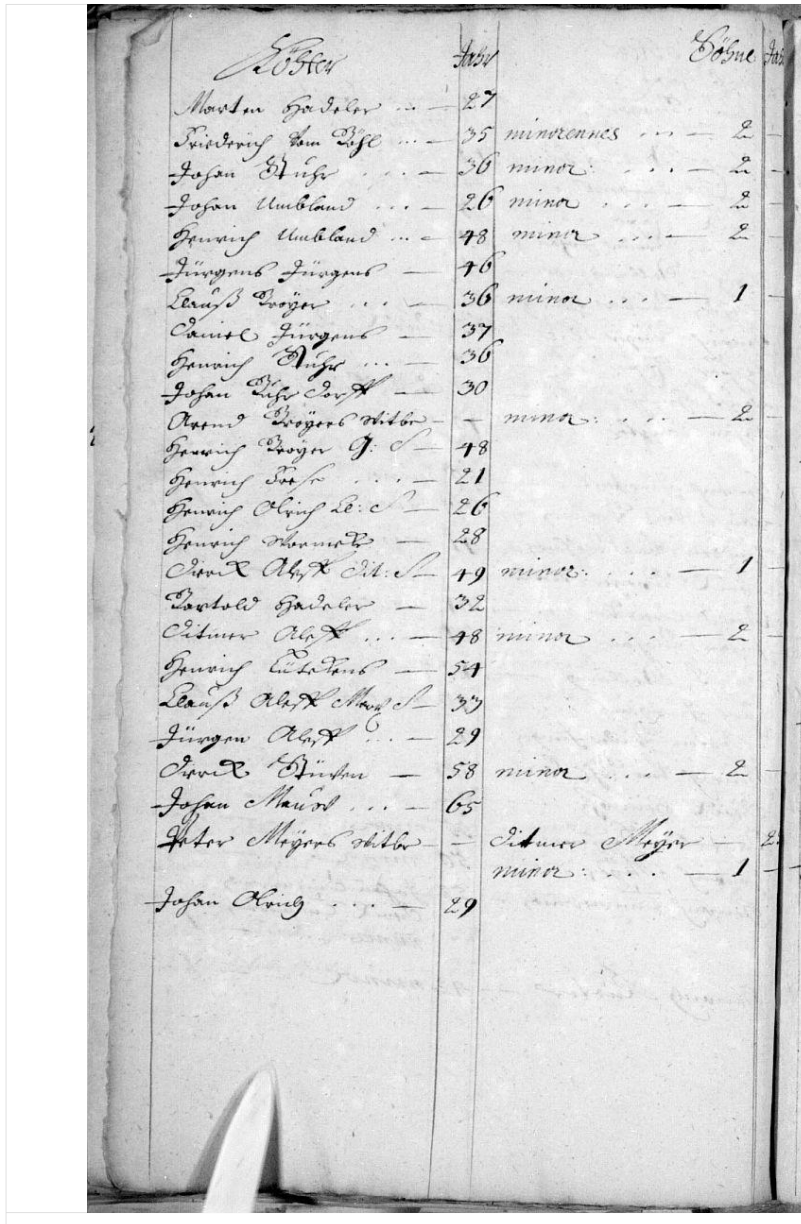 Köhter Jahr Söhne Jah
Marten Hadeler ... — 27
Friederich Vom Böhl ... — 35 minorennes ... — 2 —
Johan Stuhr .... — 36 minor: .... — 2 —
Johan Umbland ... — 26 minor .... — 2 —
Henrich Umbland ... — 48 minor .... — 2 —
Jürgens Jürgens — 46
Clauß Kröger .... — 36 minor .... — 1 —
Daniel Jürgens — 37
Henrich Stuhr .... — 36
Johan — 30
Arend Krögers Witbe — — minor: .... — 2 —
Henrich Kröger G: S — 48
Henrich Frese .... — 21
Henrich Olrich Cl: S — 26
Henrich — 28
Dirck Aleff Dit: S — 49 minor: .... — 1 —
Bartold Hadeler — 32
Ditmer Aleff ... — 48 minor .... — 2 —
Henrich Lütekens — 54
Clauß Aleff Marx S — 33
Jürgen Aleff .. — 29
Dirck Stüven — 58 minor .... — 2 —
Johan ... — 65
Peter Meyers Witbe — — Ditmer Meyer — 2
minor: .... — 1 —
Johan Olrich .... — 29